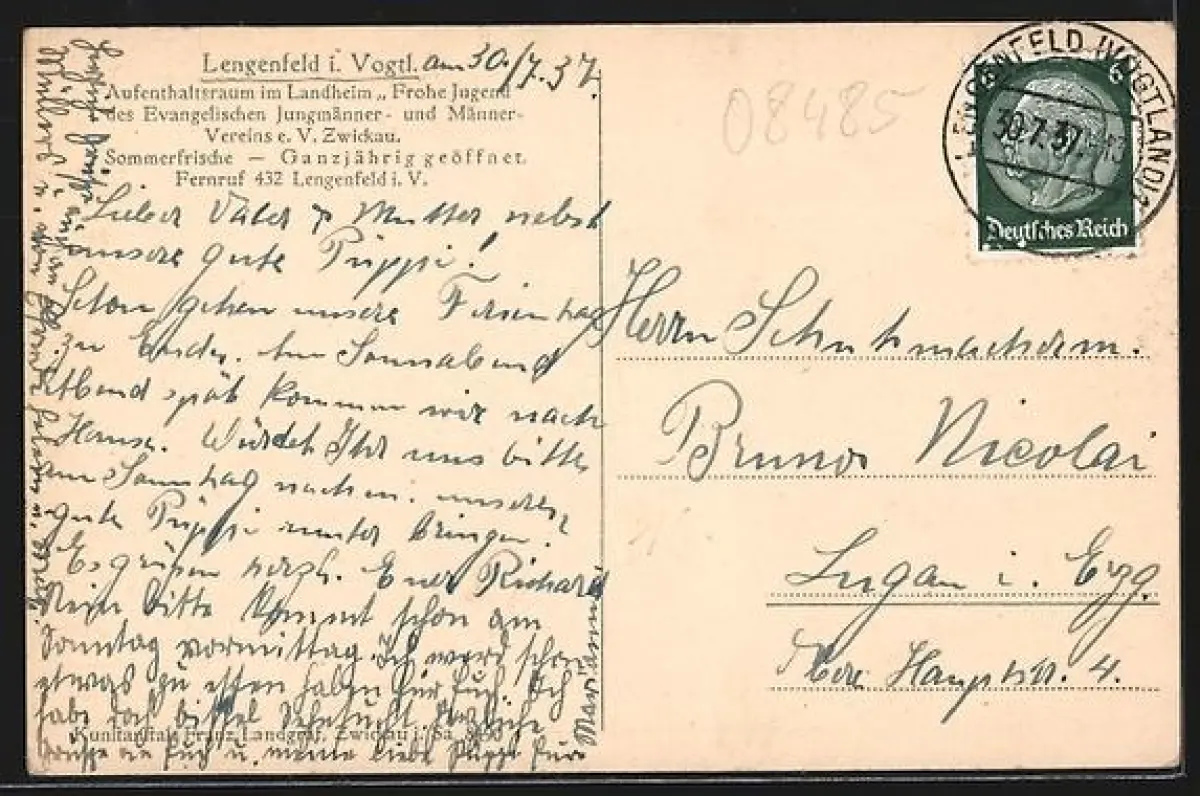 Lengenfeld i. Vogtl. am 30./7.37.
Aufenthaltsraum im Landheim „Frohe Jugend"
des Evangelischen Jungmänner- und Männer-
Vereins e. V. Zwickau.
Sommerfrische — Ganzjährig geöffnet.
Fernruf 432 Lengenfeld i. V.
Lieber Vater & Mutter nebst
unsere gute Püppi!
Schon gehen unsere Ferientage
zu Ende. Am Sonnabend
Abend spät kommen wir nach
Hause. Würdet Ihr uns bitte
am Sonntag nachm. unsere
gute Püppi runter bringen?
Es grüßen herzl. Euer Richard
Nein bitte kommt schon am
Sonntag vormittag. Ich werd schon
etwas zu essen haben für Euch. Ich
hab doch bissel Sehnsucht. Herzliche
Grüsse an Euch u. meine liebe Püppi Eure
Marianne
Kunstanstalt Franz Landgraf, Zwickau i. Sa.
08485
LENGENFELD (VOGTLAND)
30.7.37.
6
6
Deutsches Reich
Herrn Schuhmacherm.
Bruno Nicolai
Lugau i. Erzg.
Obere Hauptstr. 4.